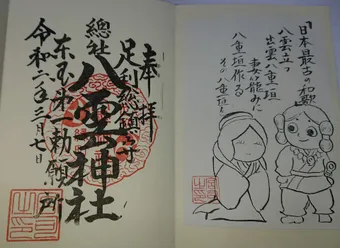 奉拝
足利総鎮守
總社八雲神社
東国第一勅願所
令和二年三月七日
「日本最古の和歌」
八雲立つ
出雲八重垣
妻籠みに
八重垣作る
その八重垣を